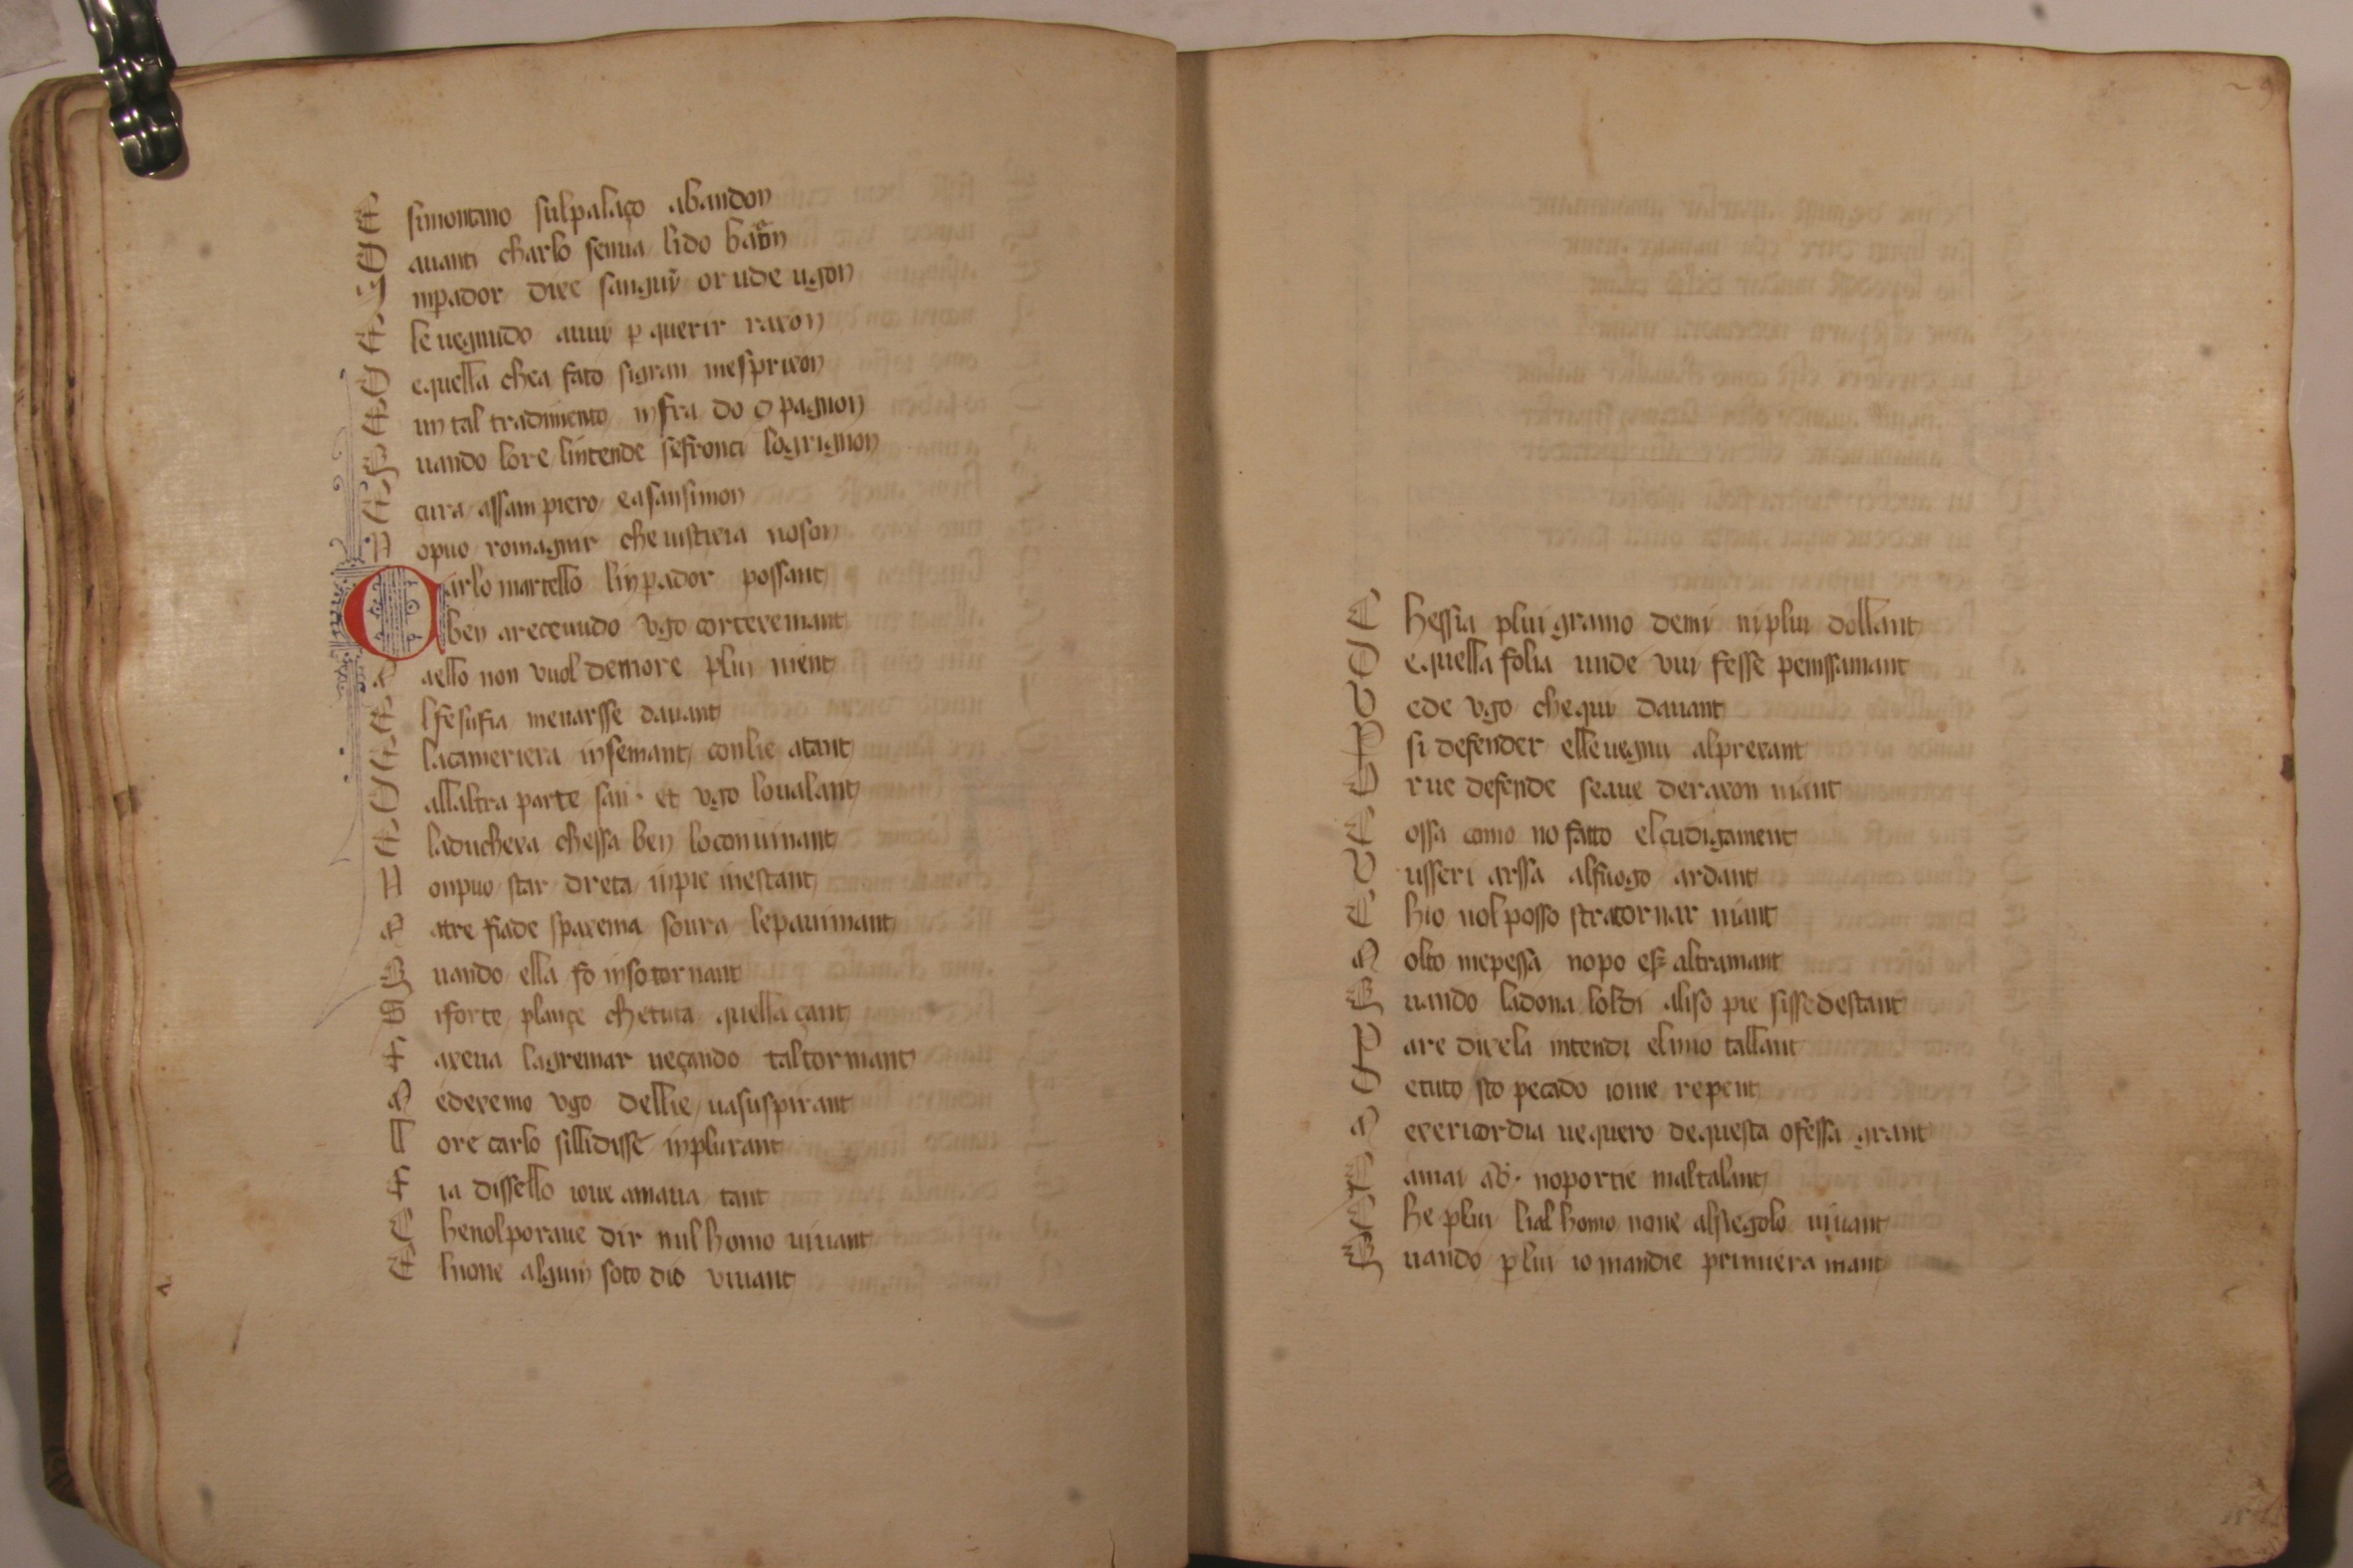 E simontano sul palaço abandon
D auanti charlo senna li do barõn
I npador dixe sanguĩ or ude ugon
E le uegnudo auui p querir raxon
D e quella che a fato si gran mesprixon
E un tal tradimento infra do ꝯpagnon
Q uando lo re lintende se fronci lo grignon
E cura assam piero e a sansimon
N o puo romagnir che iusticia no son
Carlo martello linpador possant
A ben areceuudo vgo cortexemant
A dello non vuol demore plui nient
E l fe sufia menarsse dauant
E la cameriera insemant con lie atant
D allaltra parte san· et vgo lo ualant
E la duchexa chessa ben lo conuinant
N on puo star dreta in pie in estant
A tre fiade spaxema soura le pauimant
Q uando ella fo in so tornant
S i forte plançe che tuta quella çant
F axeua lagremar ueçando tal tormant
M edexemo vgo de llie ua suspirant
L ore carlo silli disse in plurant
F ia dissello io ue amaua tant
C he nol poraue dir nul homo uiuant
E l none algun soto dio viuant
C hessia plui gramo de mi ni plui dollant
D e quella folia unde vui fesse penssamant
V ede vgo che qui dauant
P si defender elle uegnu al prexant
S x ue defende se aue de raxon niant
C ossa como no fatto el çudigament
V usseri arssa al fuogo ardant
C hio nol posso stratornar niant
M olto me pessa no po eſſ altramant
Q uando la dona loldi a li so pie sisse destant
P are dixela intendi el mio tallant
D e tuto sto pecado io me repent
M exericordia ue quero de questa ofessa grant
E amai ab· no portie maltalant
C he plui lial homo none al segolo uiuant
Q uando plui io mandie primiera mant